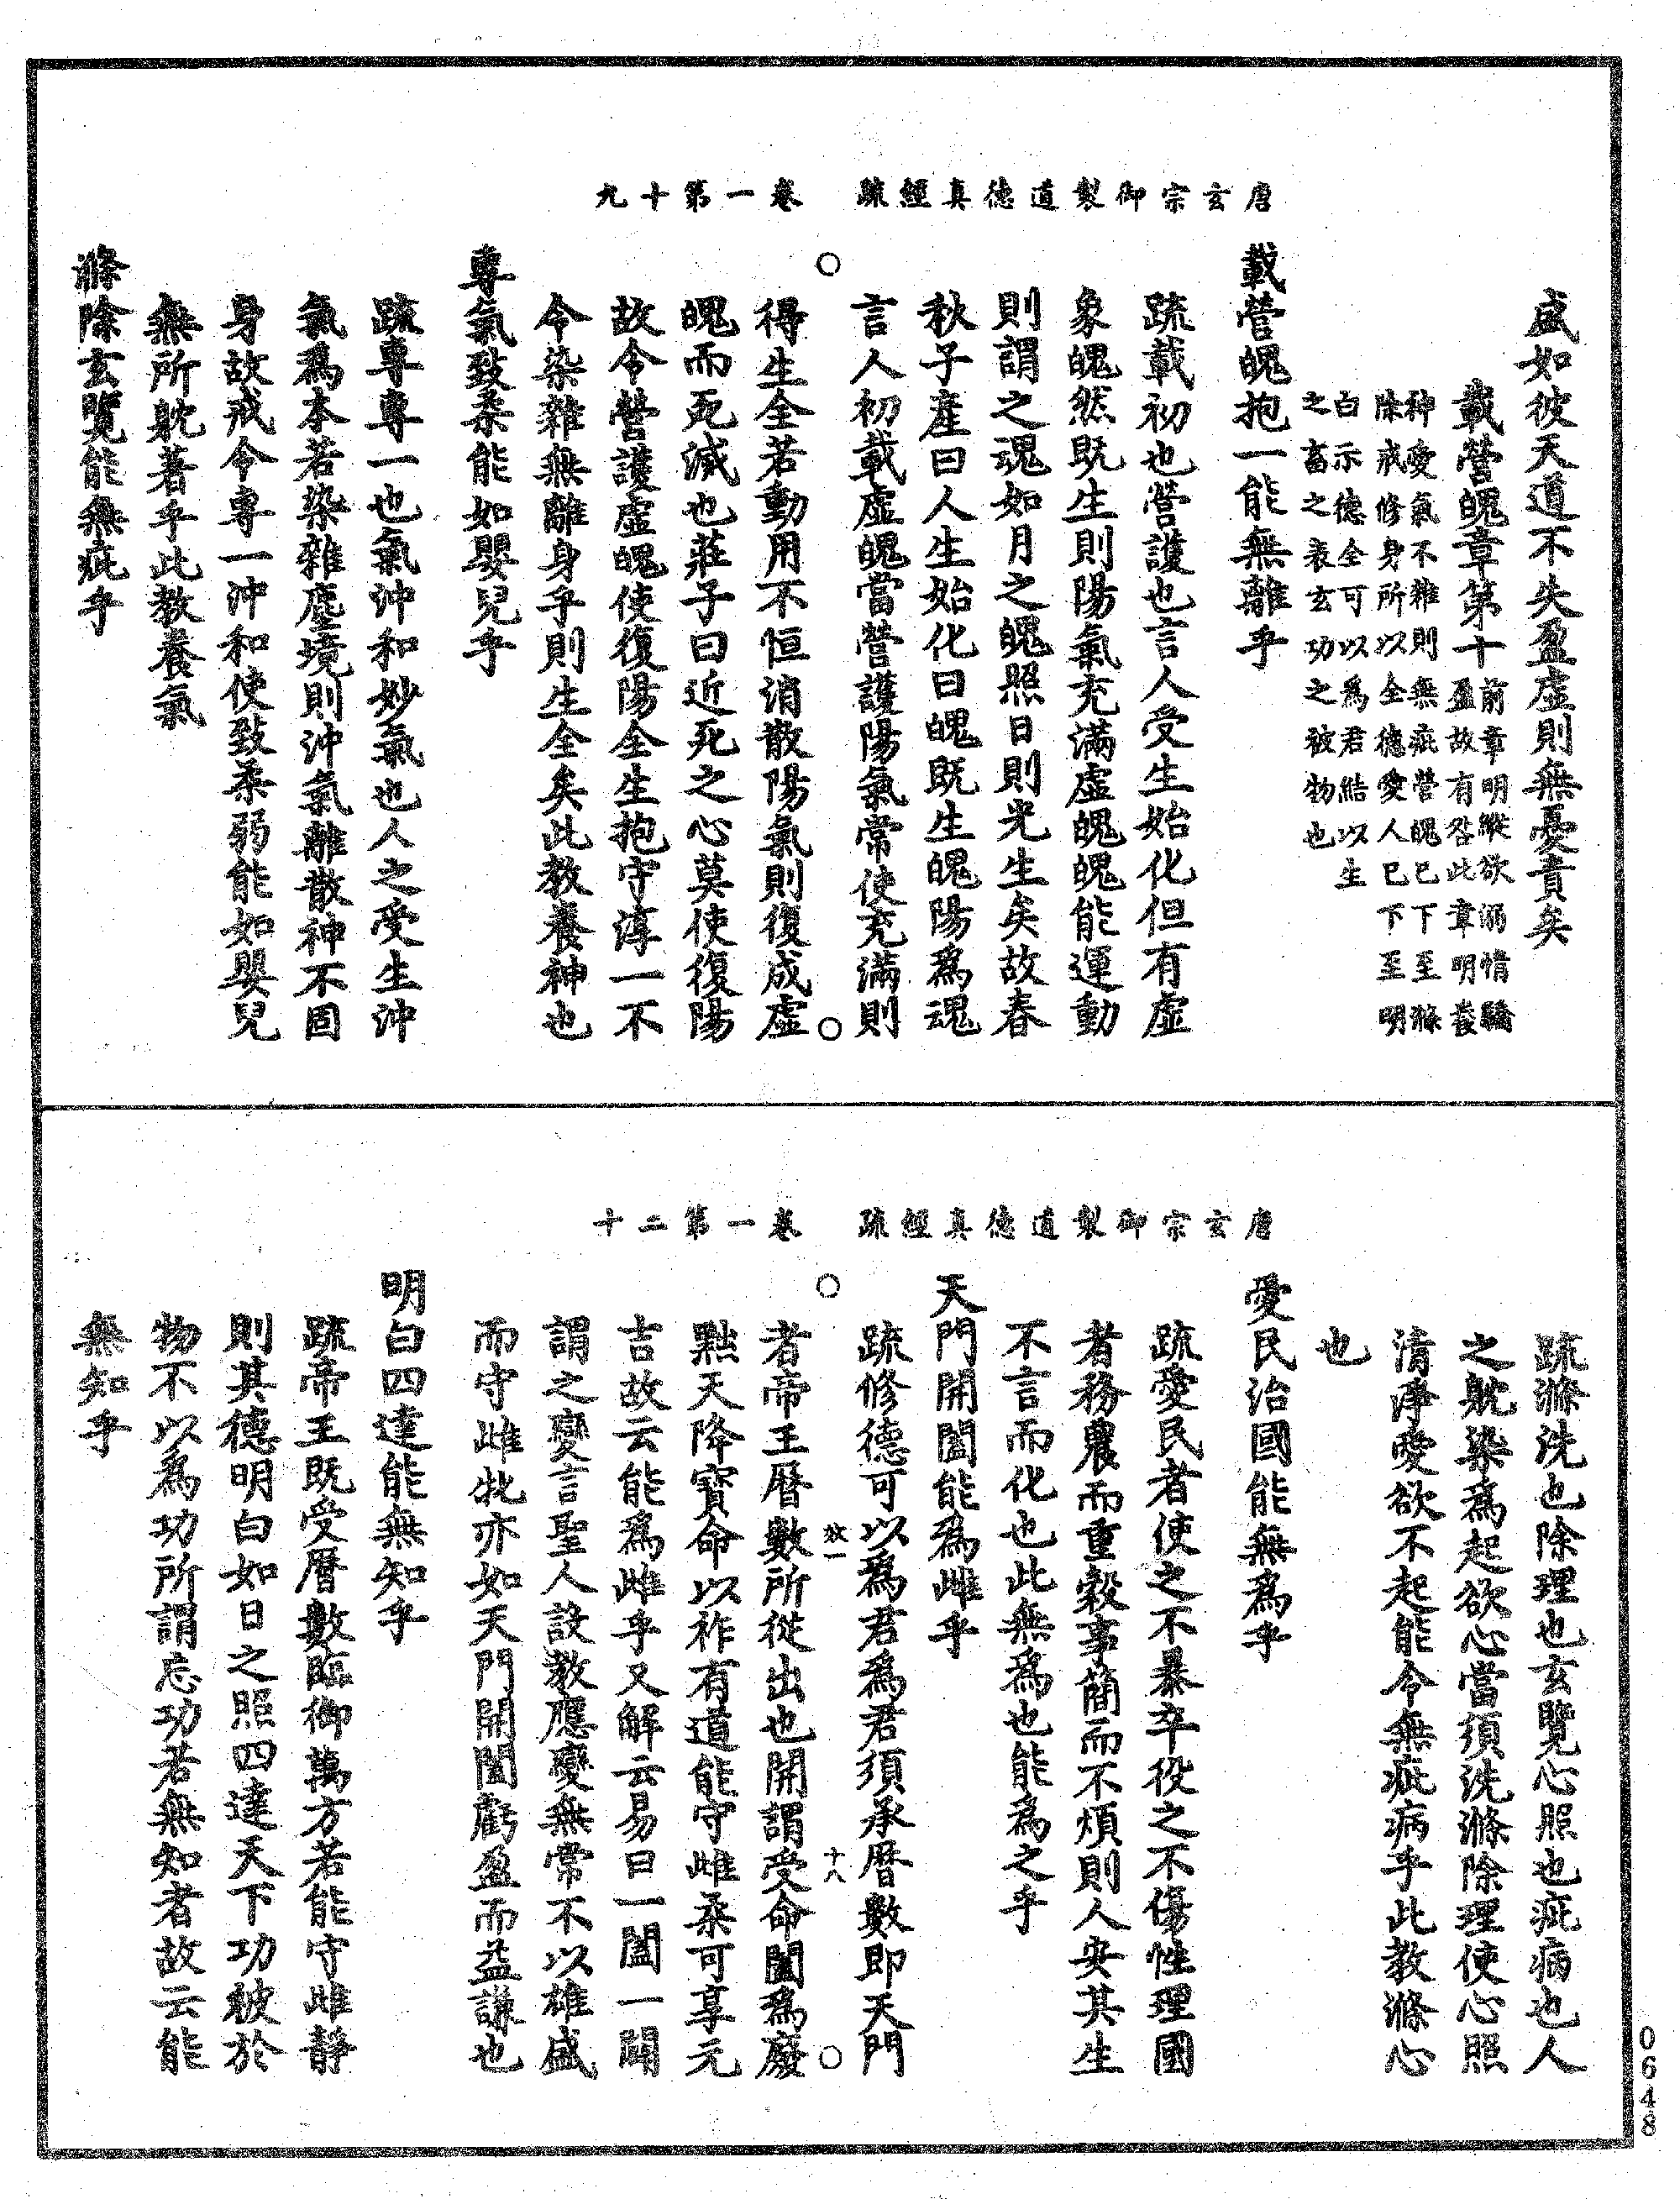 唐玄宗御製道德真經疏　卷一第十九
盛如彼天道不失盈虛則無憂責矣
載營魄章第十
前章明縱欲溺情驕
盈故有咎此章明養
神愛氣不雜則無疵營魄已下至滌
除戒修身所以全德愛人已下至明
白示德全可以為君結以生
之畜之表玄功之被物也
載營魄抱一能無離乎
疏載初也營護也言人受生始化但有虛
象魄然既生則陽氣充滿虛魄魄能運動
則謂之魂如月之魄照日則光生矣故春
秋子產曰人生始化曰魄既生魄陽為魂
言人初載虛魄當營護陽氣常使充滿則
得生全若動用不恒消散陽氣則復成虛
魄而死滅也莊子曰近死之心莫使復陽
故令營護虛魄使復陽全生抱守淳一不
令染雜無離身乎則生全矣此教養神也
專氣致柔能如嬰兒乎
疏專專一也氣沖和妙氣也人之受生沖
氣為本若染雜塵境則沖氣離散神不固
身故戒令專一沖和使致柔弱能如嬰兒
無所躭著乎此教養氣
滌除玄覽能無疵乎
唐玄宗御製道德真經疏　卷一第二十
疏滌洗也除理也玄覽心照也疵病也人
之躭染為起欲心當須洗滌除理使心照
清淨愛欲不起能令無疵病乎此教滌心
也
愛民治國能無為乎
疏愛民者使之不暴卒役之不傷性理國
者務農而重穀事簡而不煩則人安其生
不言而化也此無為也能為之乎
天門開闔能為雌乎
疏修德可以為君為君須承曆數即天門
效一　十八
者帝王曆數所從出也開謂受命闔為廢
黜天降寶命以祚有道能守雌柔可享元
吉故云能為雌乎又解云易曰一闔一闢
謂之變言聖人設教應變無常不以雄盛
而守雌牝亦如天門開闔虧盈而益謙也
明白四達能無知乎
疏帝王既受曆數臨御萬方若能守雌靜
則其德明白如日之照四達天下功被於
物不以為功所謂忘功若無知者故云能
無知乎
0648